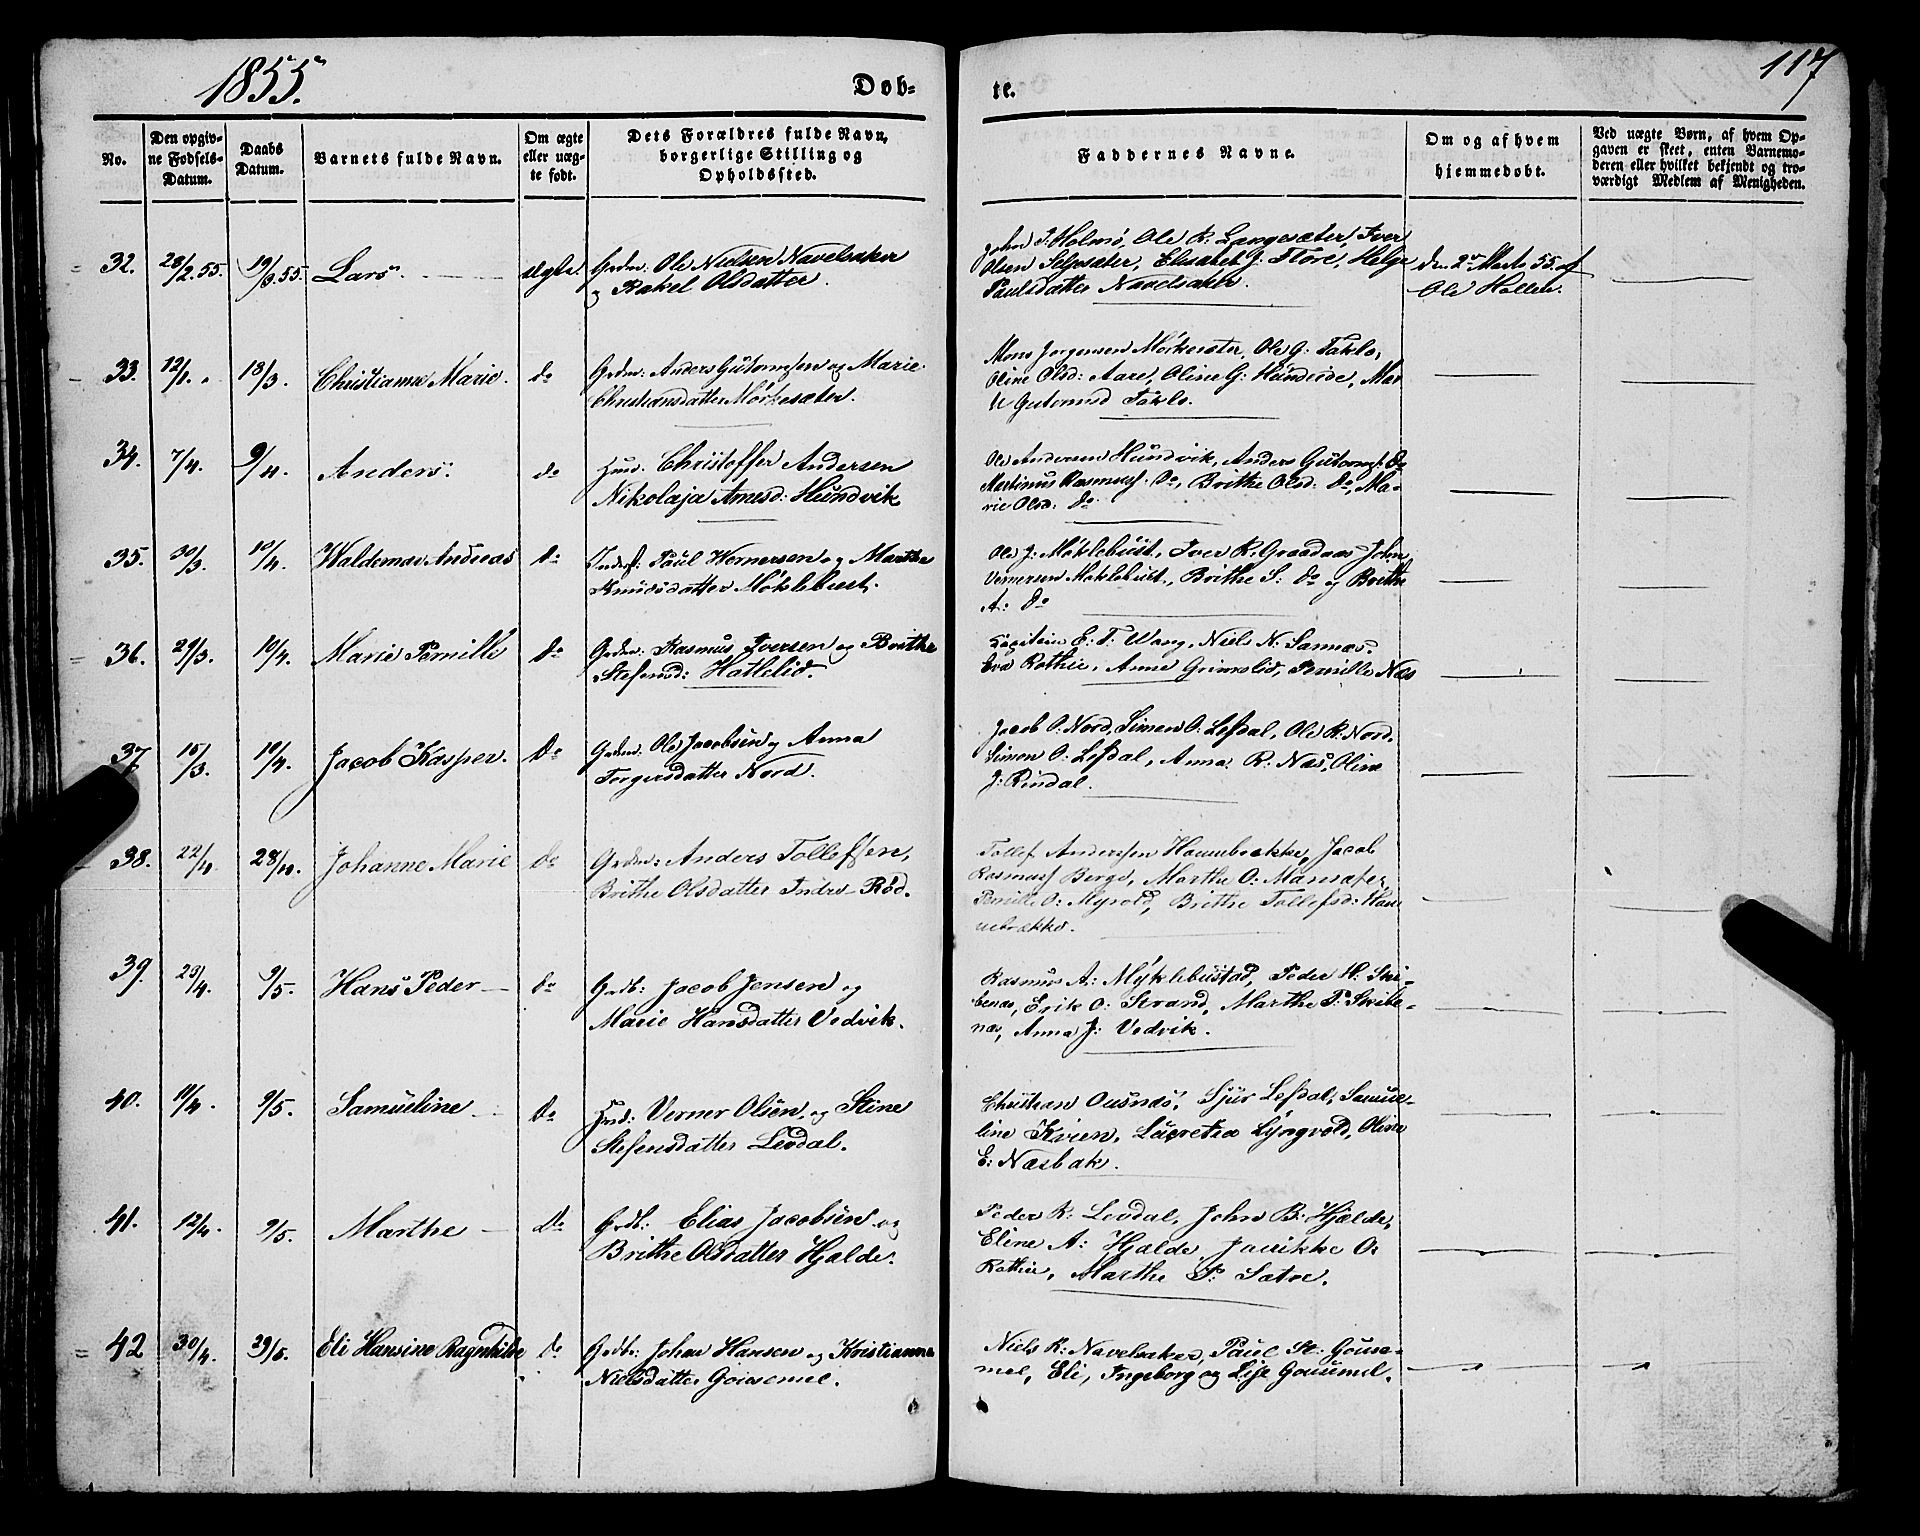 1855.
Døb-
te.
117
No.
Den opgiv-
ne Fødsels-
Datum.
Daabs
Datum.
Barnets fulde Navn.
Om ægte
eller uæg-
te født.
Dets Forældres fulde Navn,
borgerlige Stilling og
Opholdssted.
Faddernes Navne.
Om og af hvem
hjemmedøbt.
Ved uægte Børn, af hvem Op-
gaven er skeet, enten Barnemo-
deren eller hvilket bekjendt og tro-
værdigt Medlem af Menigheden.
32. 28/2.55. 19/3.55. Lars. ægte. Grdm: Ole Nielsen Navelsaker
og Rakel Olsdatter.
John J: Holmø, Ole R: Langesæter, Iver
Olsen Selgesæter, Elisabeth J: Flore, Helge
Paulsdatter Navelsaker.
den 2 Marts 55. af
Ole Hollen.
33. 12/1. 18/3. Christianne Marie. do Grdm: Anders Gutormsen og Marie
Christiansdatter Mørkesæter.
Mons Jørgensen Mørkesæter, Ole G: Taklo,
Oline Olsd: Aare, Oline G: Hundeide, Mar
te Gutormsd Taklo.
34. 7/4. 9/4. Anders: do Christoffer Andersen
Nikolaja Arnesd: Hundvik
Ole Andersen Hundvik, Anders Gutormsf: do
Martinus Rasmusf. do, Brithe Olsd: do, Ma-
rie Olsd: do.
35. 30/3. 10/4. Waldemar Andreas do Inderst: Paul Wernersen og Marthe
Knudsdatter Møklebust.
Ole J: Møklebust, Iver R: Graadaas John
Vernersen Møklebust, Brithe S: do og Brithe
A: do
36. 29/3. 10/4. Marie Pernille do Grdm: Rasmus Iversen og Brithe
Stefensd: Hatlelid.
Capitein E: T. Wang, Niels N: Sannæs,
Rothie, Anne Grimslid, Pernille Næs
37. 15/3. 10/4. Jacob Kasper. do Grdm: Ole Jacobsen og Anna
Torgersdatter Nord.
Jacob O: Nord, Simon O: Lefdal, Ole R: Nord,
Simon O: Lefdal, Anna R: Næs, Oline
J: Rindal.
38. 22/4 28/4. Johanne Marie do Grdm: Anders Tollefsen,
Brithe Olsdatter Indre Rød.
Tollef Anderssen Haunebrække, Jacob
Rasmusf Berge, Marthe O:
Pernille O: Myrold, Brithe Tollefsd: Hau
nebrække.
39. 23/4. 9/5. Hans Peder do Grdb: Jacob Jensen og
Marie Hansdatter Vedvik.
Rasmus A: Myklebustad, Peder H: Skri-
benæs, Erik O: Strand, Marthe P: Skribe-
næs, Anna J: Vedvik.
40. 11/4. 9/5. Samueline do Verner Olsen og Stine
Stefensdatter Levdal.
Christian Ousnæs, Sjur Lefdal, Samue-
line Kvien, Lucretia Lyngvold, Oline
E: Næsbak.
41. 12/4. 9/5. Marthe do Grdb: Elias Jacobsen og
Brithe Olsdatter Hjalde.
Peder R: Levdal, John B: Hjælde,
Eline A: Hjalde, Jørikke O:
Rothie, Marthe P: Sætre.
42 30/4. 29/5. Eli Hansine Ragnhilde do Grdb: Johan Hansen og Kristianne
Nielsdatter Gousemel.
Niels R: Navelsaker, Paul St: Gouse-
mel, Eli, Ingeborg og Lise Gousemel.